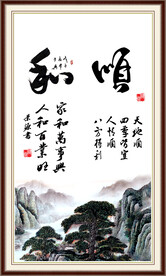 和順
天地順
四季皆宜
人情順
八方得利
家和萬事興
人和百業旺